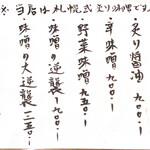 ※ 当店は札幌式炙り味噌です
・炙り醤油 九〇〇-
・辛味噌 九〇〇-
・野菜味噌 九五〇-
・味噌の逆襲 一九〇〇-
・味噌の大逆襲 二五〇-